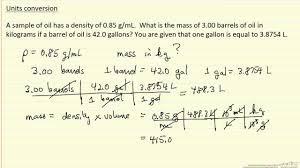 Units conversion
A sample of oil has a density of 0.85 g/mL. What is the mass of 3.00 barrels of oil in
kilograms if a barrel of oil is 42.0 gallons? You are given that one gallon is equal to 3.8754 L.
ρ = 0.85 g/mL mass in kg ?
3.00 barrels 1 barrel = 42.0 gal 1 gal = 3.8754 L
3.00 barrels | 42.0 gal | 3.8754 L
| 1 barrel | 1 gal =
mass = density x volume = 0.85 g | 488.3 L | 10³ mL | kg
mL | | L | 10³ g
= 415.0